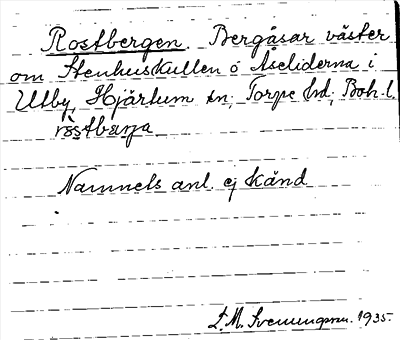 Rostbergen. Bergåsar väster
om Stenhuskullen o Åseliderna i
Utby, Hjärtum sn; Torpe hd; Boh.l.
ròstbærja
Namnets anl. ej känd
L.M. Svenungsson. 1935.